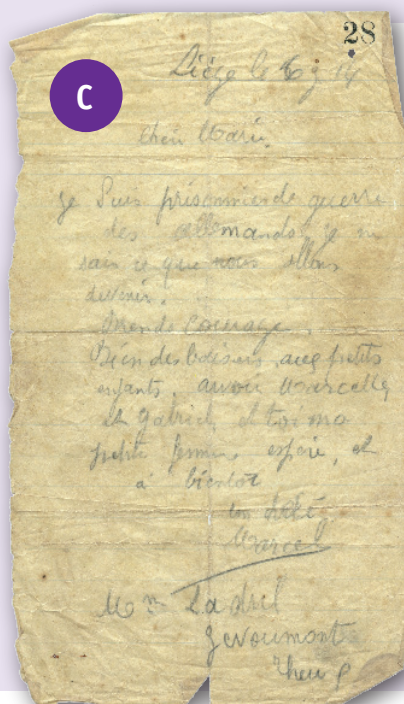 28
C
Liège le 6 9 14
Cher Marie,
Je suis prisonnier de guerre
des allemands je ne
sais ce que nous allons
devenir.
Prends courage.
Bien des baisers aux petits
enfants, auvoir Marcelle
et Gabriel, et toi ma
petite femme espère, et
à bientôt
ton
Marcel
Mme Ladril
Jevoumont
Theux